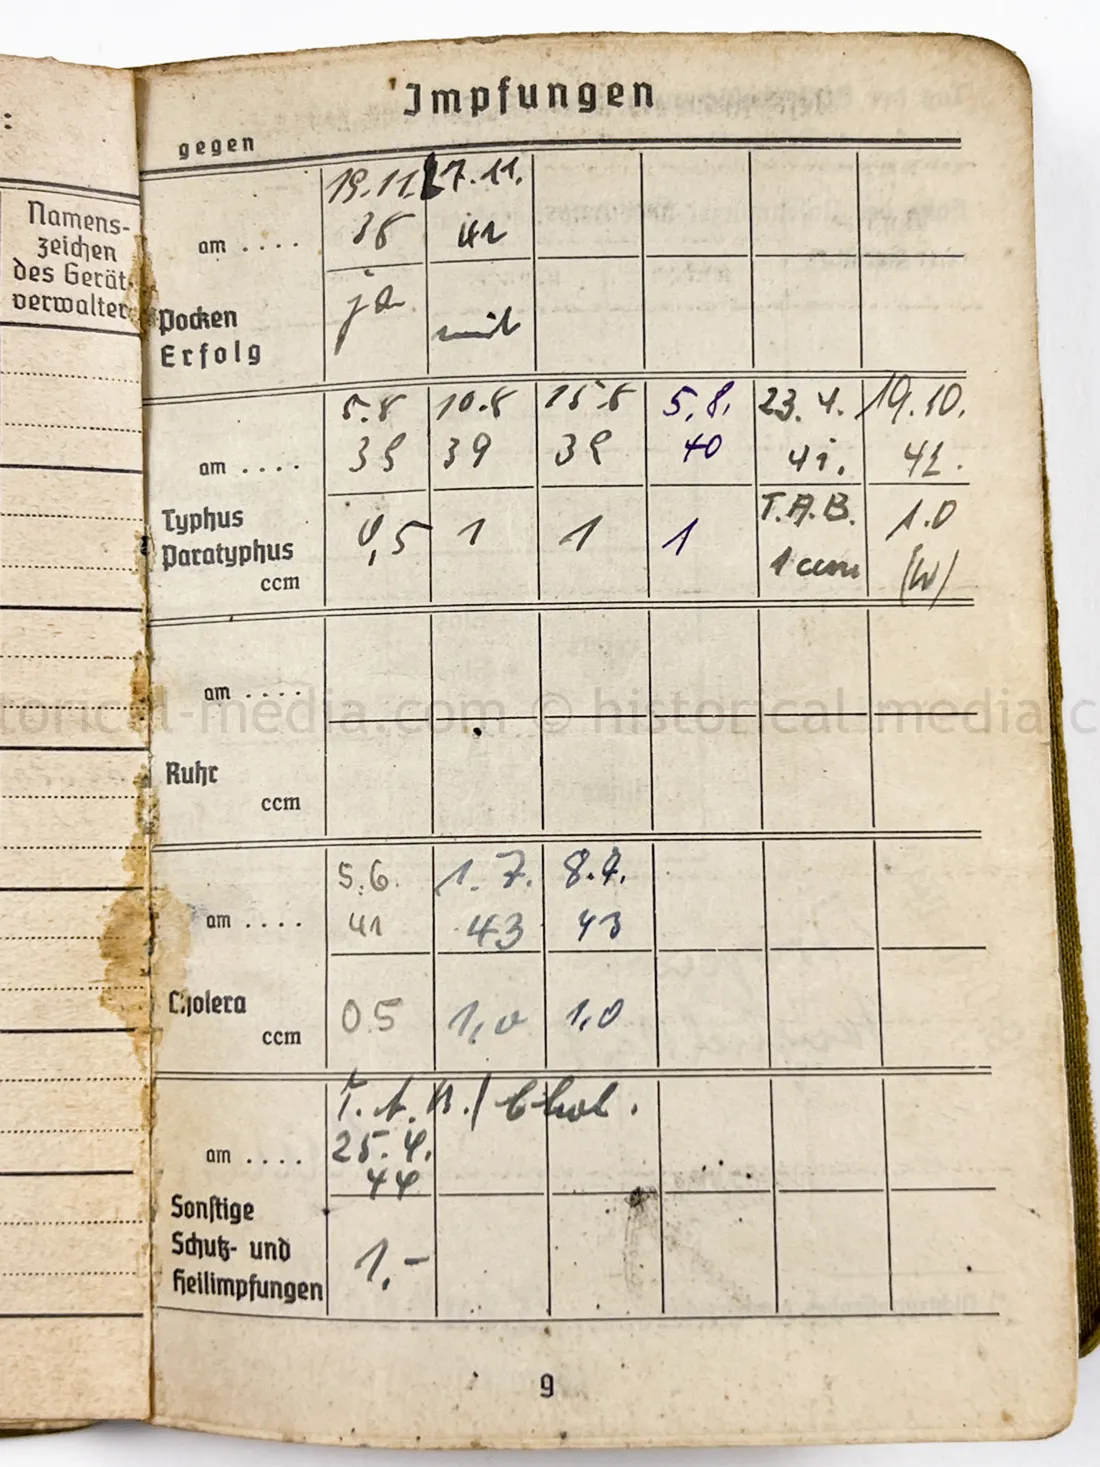 :
Namens-
zeichen
des Gerät-
verwalters
Impfungen
gegen
19.11. 27.11.
am .... 38 41
Pocken ja mit
Erfolg
5.8 10.8 15.8 5.8. 23.4. 19.10.
am .... 39 39 39 40 41. 42.
Typhus 0,5 1 1 1 T.A.B. 1.0
Paratyphus 1 ccm (W)
ccm
am ....
Ruhr
ccm
5.6. 1.7. 8.7.
am .... 41 43 43
Cholera 0.5 1,0 1,0
ccm
T.A.B./Chol.
am .... 25.4.
44
Sonstige
Schutz- und 1.-
Heilimpfungen
9
torical-media.com © historical-media.c